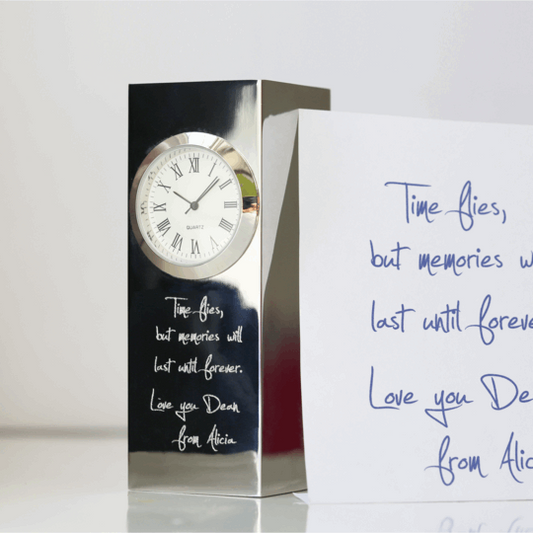 XII
I
II
III
IIII
V
VI
VII
VIII
IX
X
XI
QUARTZ
Time flies,
but memories will
last until forever.
Love you Dean
from Alicia
Time flies,
but memories w
last until foreve
Love you De
from Alic